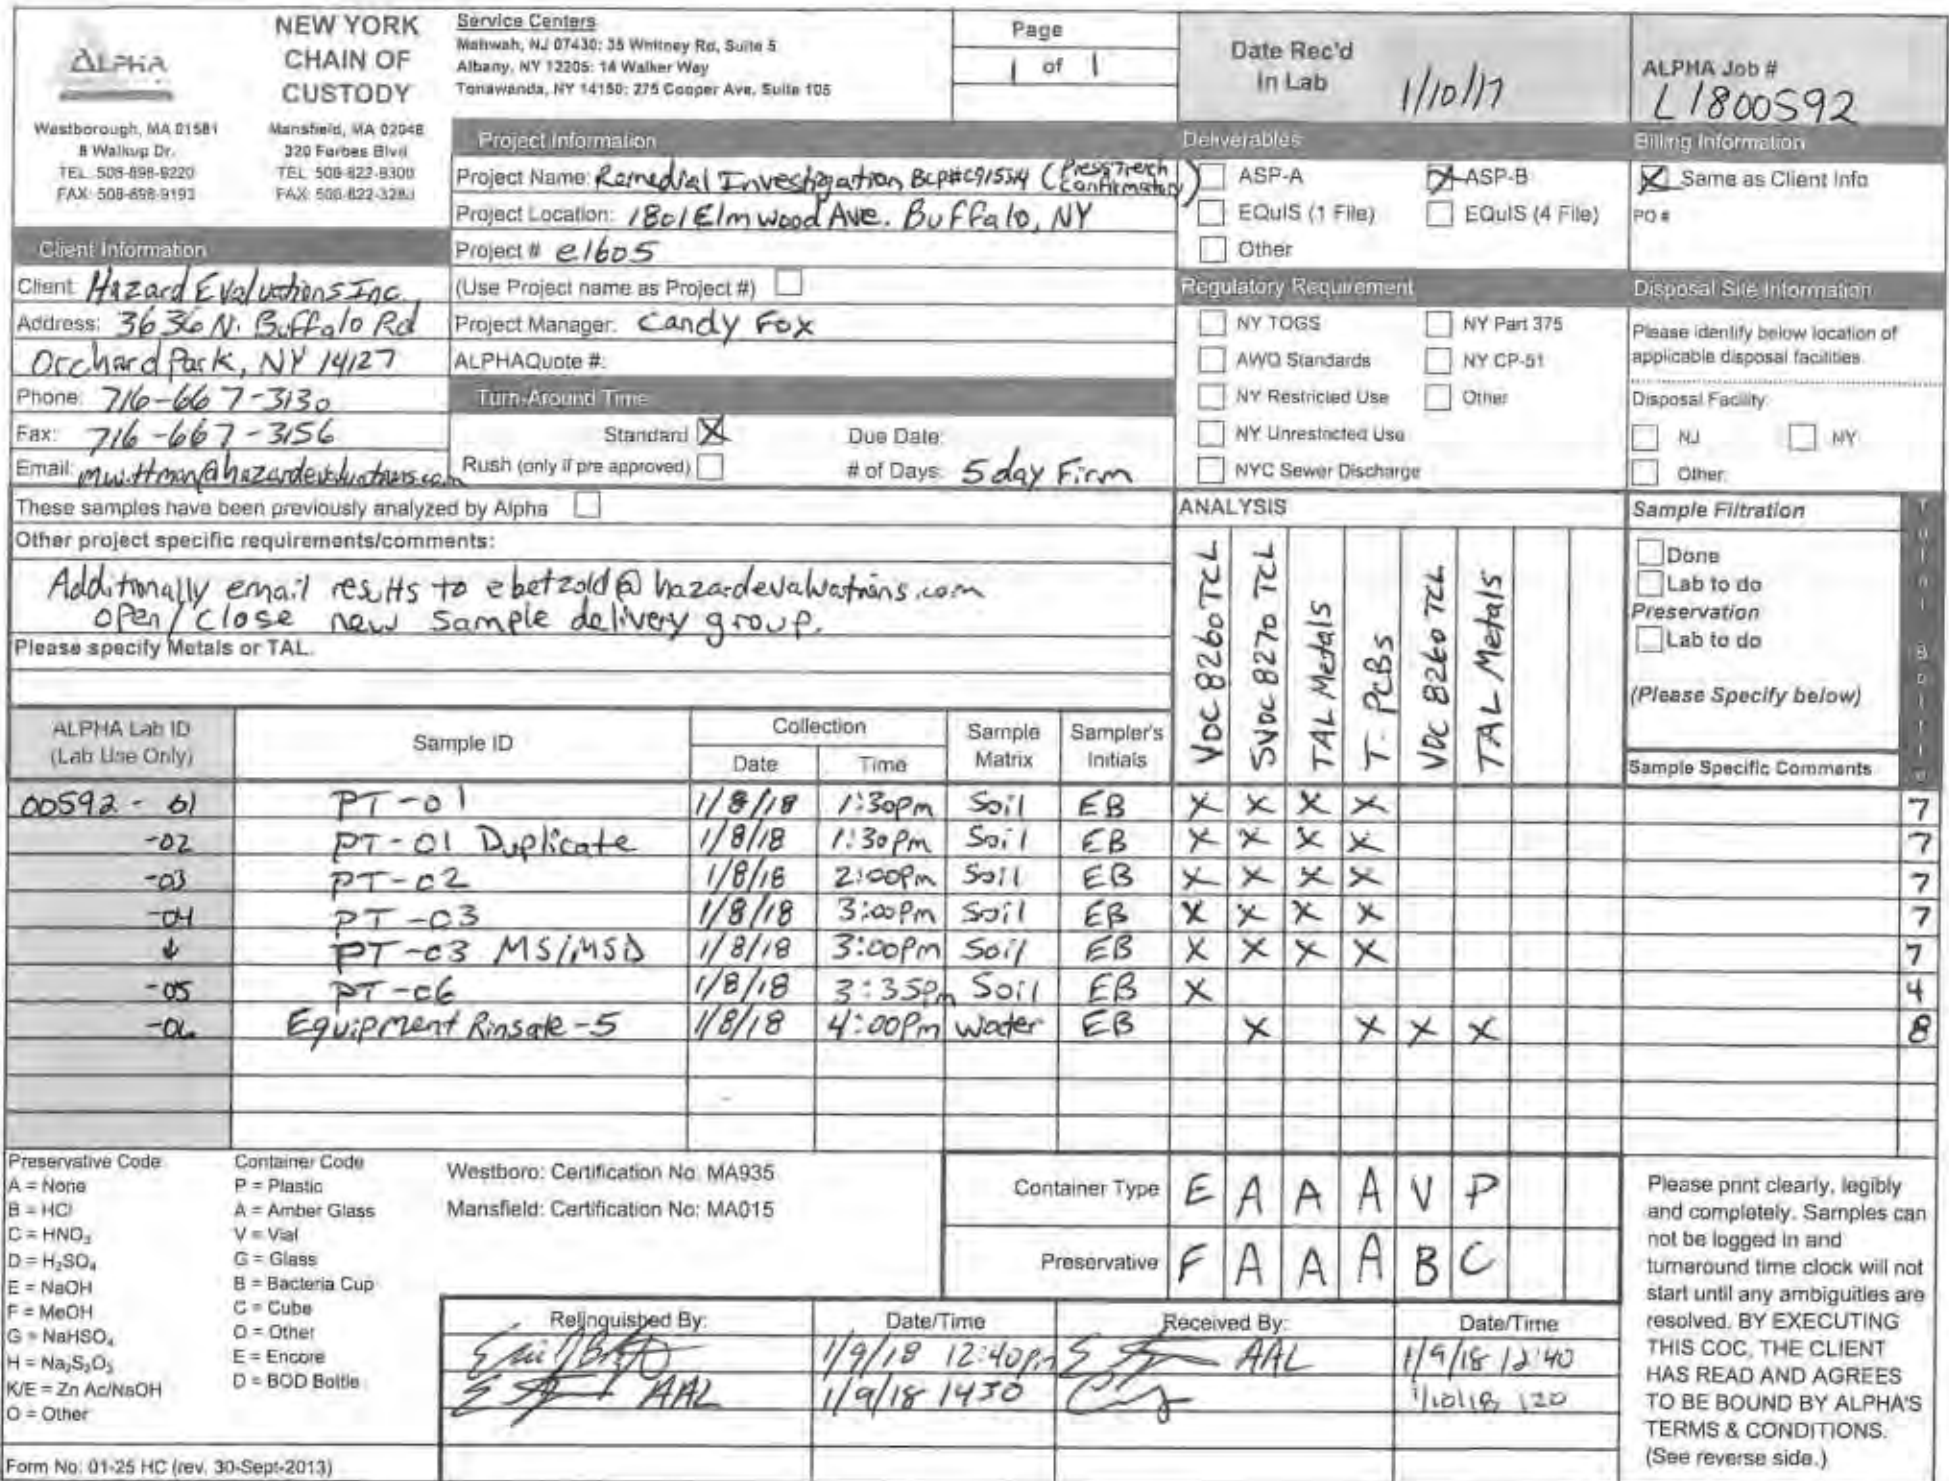 ALPHA
NEW YORK
CHAIN OF
CUSTODY
Westborough, MA 01581
8 Walkup Dr.
TEL: 508-898-9220
FAX: 508-898-9193
Mansfield, MA 02048
320 Forbes Blvd
TEL: 508-822-9300
FAX: 508-822-3288
Service Centers
Mahwah, NJ 07430: 35 Whitney Rd, Suite 5
Albany, NY 12205: 14 Walker Way
Tonawanda, NY 14150: 275 Cooper Ave, Suite 105
Page
1 of 1
Date Rec'd
In Lab
1/10/17
ALPHA Job #
L1800592
Project Information
Project Name: Remedial Investigation BCP#C915314 (Press Trench Confirmatory)
Project Location: 1801 Elmwood Ave. Buffalo, NY
Project # e1605
(Use Project name as Project #)
Project Manager: Candy Fox
ALPHAQuote #:
Turn-Around Time
Standard X Due Date:
Rush (only if pre approved) # of Days: 5 day Firm
Client Information
Client: Hazard Evaluations Inc.
Address: 3636 N. Buffalo Rd
Orchard Park, NY 14127
Phone: 716-667-3130
Fax: 716-667-3156
Email: mwittman@hazardevaluations.com
Deliverables
ASP-A X ASP-B
EQuIS (1 File) EQuIS (4 File)
Other
Billing Information
X Same as Client Info
PO #
Regulatory Requirement
NY TOGS NY Part 375
AWQ Standards NY CP-51
NY Restricted Use Other
NY Unrestricted Use
NYC Sewer Discharge
Disposal Site Information
Please identify below location of
applicable disposal facilities.
Disposal Facility:
NJ NY
Other:
These samples have been previously analyzed by Alpha
Other project specific requirements/comments:
Additionally email results to ebetzold@hazardevaluations.com
open/close new sample delivery group.
Please specify Metals or TAL.
ANALYSIS
VOC 8260 TCL
SVOC 8270 TCL
TAL Metals
T. PCBs
VOC 8260 TCL
TAL Metals
Sample Filtration
Done
Lab to do
Preservation
Lab to do
(Please Specify below)
Total Bottle
ALPHA Lab ID
(Lab Use Only)
Sample ID
Collection
Date Time
Sample
Matrix
Sampler's
Initials
Sample Specific Comments
00592-01 PT-01 1/8/18 1:30pm Soil EB X X X X 7
-02 PT-01 Duplicate 1/8/18 1:30pm Soil EB X X X X 7
-03 PT-02 1/8/18 2:00pm Soil EB X X X X 7
-04 PT-03 1/8/18 3:00pm Soil EB X X X X 7
↓ PT-03 MS/MSD 1/8/18 3:00pm Soil EB X X X X 7
-05 PT-06 1/8/18 3:35pm Soil EB X 4
-06 Equipment Rinsate-5 1/8/18 4:00pm Water EB X X X X 8
Preservative Code:
A = None
B = HCl
C = HNO₃
D = H₂SO₄
E = NaOH
F = MeOH
G = NaHSO₄
H = Na₂S₂O₃
K/E = Zn Ac/NaOH
O = Other
Container Code
P = Plastic
A = Amber Glass
V = Vial
G = Glass
B = Bacteria Cup
C = Cube
O = Other
E = Encore
D = BOD Bottle
Westboro: Certification No: MA935
Mansfield: Certification No: MA015
Container Type E A A A V P
Preservative F A A A B C
Relinquished By: Date/Time Received By: Date/Time
1/9/18 12:40pm AAL 1/9/18 12:40
AAL 1/9/18 1430 1/10/18 120
Please print clearly, legibly
and completely. Samples can
not be logged in and
turnaround time clock will not
start until any ambiguities are
resolved. BY EXECUTING
THIS COC, THE CLIENT
HAS READ AND AGREES
TO BE BOUND BY ALPHA'S
TERMS & CONDITIONS.
(See reverse side.)
Form No: 01-25 HC (rev. 30-Sept-2013)